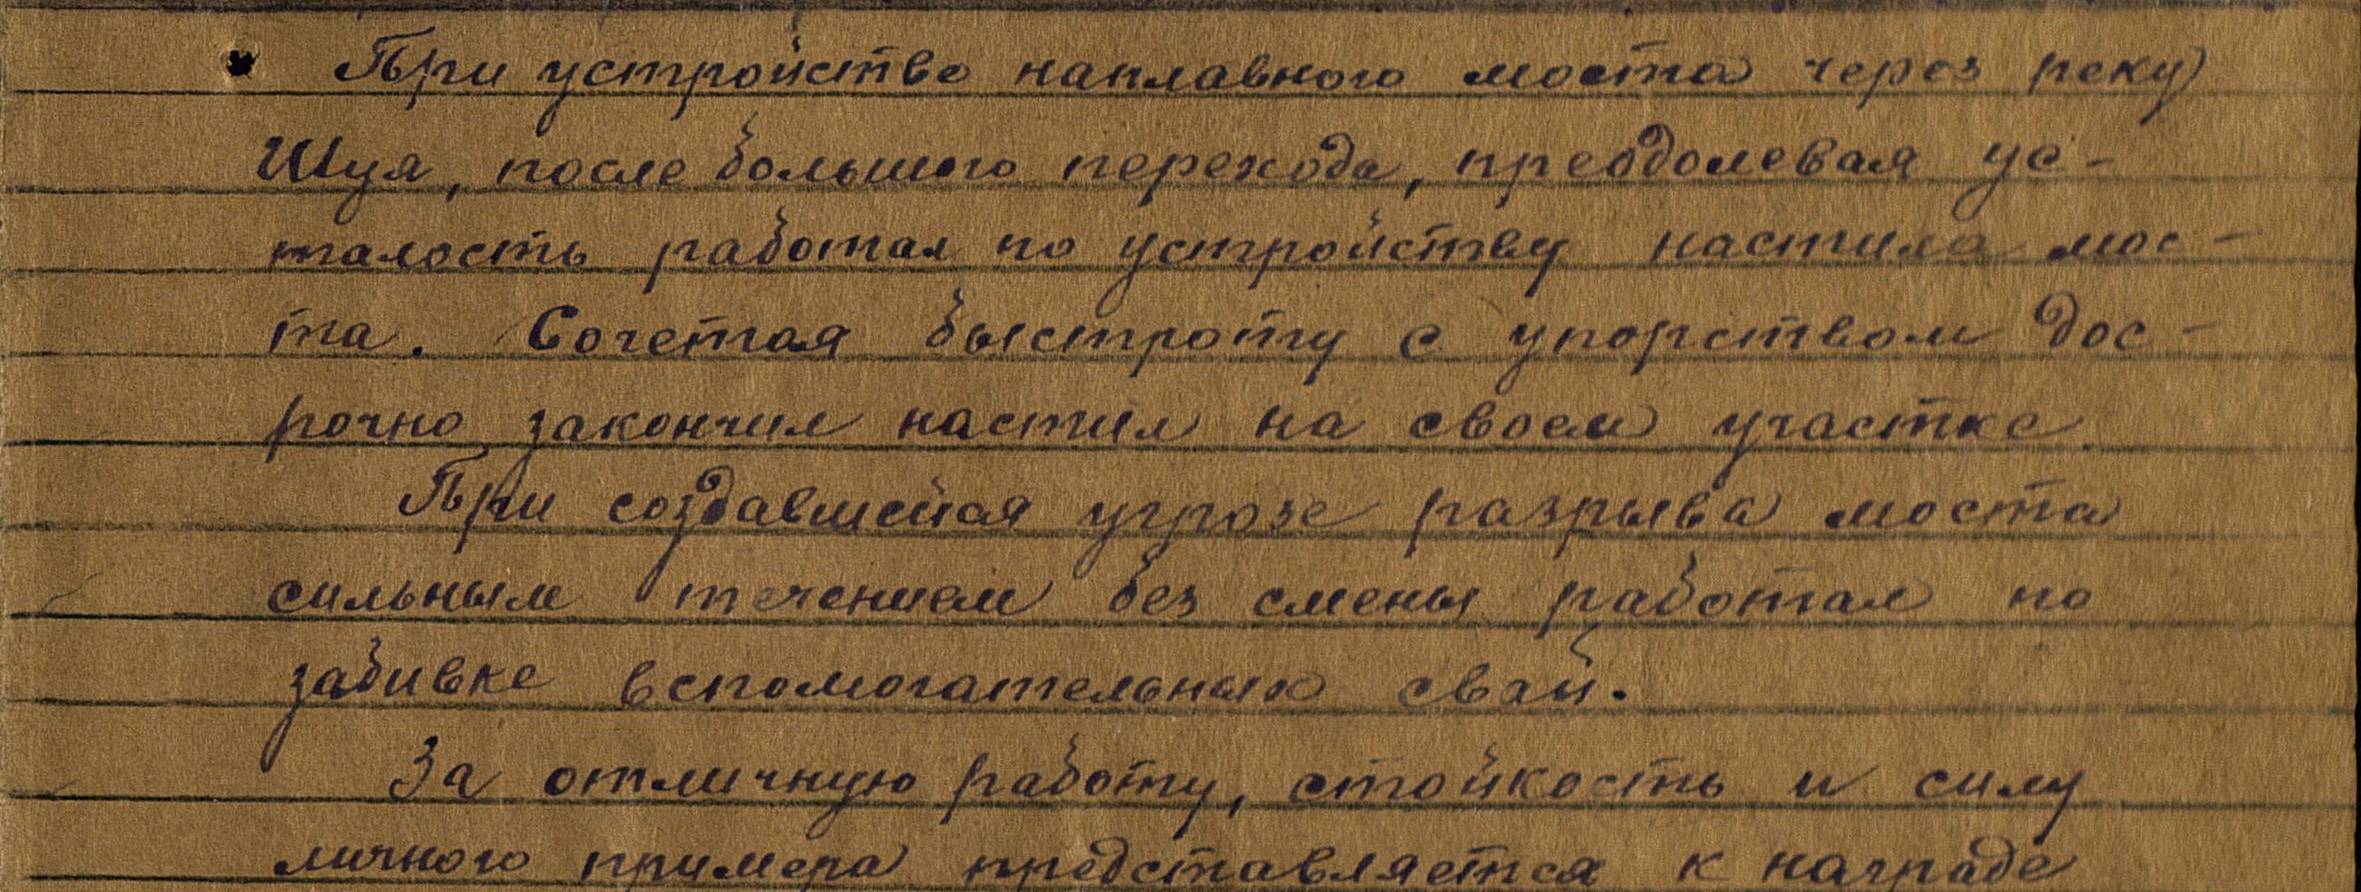 При устройстве наплавного моста через реку
Шуя, после большого перехода, преодолевая ус-
талость работал по устройству настила мос-
та. Сочетая быстроту с упорством дос-
рочно закончил настил на своем участке.
При создавшейся угрозе разрыва моста
сильным течением без смены работал по
забивке вспомогательных свай.
За отличную работу, стойкость и силу
личного примера представляется к награде